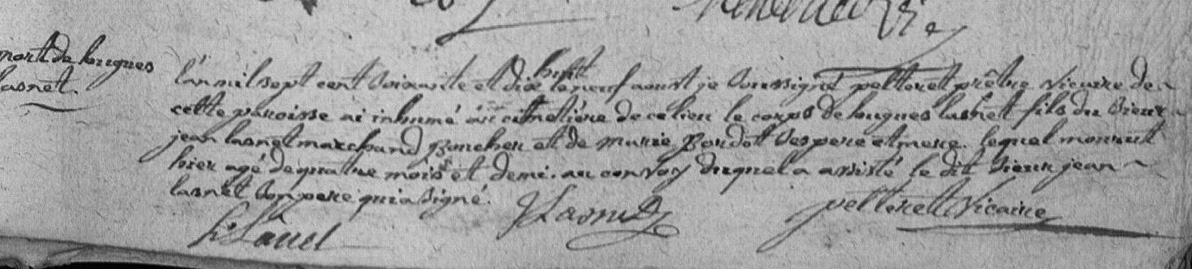 mort de hugues
lasnet.
l'an mil sept cent soixante et dix huit le neuf aoust je soussigné pelleret prêtre vicaire de
cette paroisse ai inhumé au cimetière de ce lieu le corps de hugues lasnet fils du sieur
jean lasnet marchand boucher et de marie bordot ses pere et mere. lequel mourut
hier agé de quatre mois et demi. au convoy duquel a assisté le dit sieur jean
lasnet son pere qui a signé.
J Lasnet pelleret Vicaire